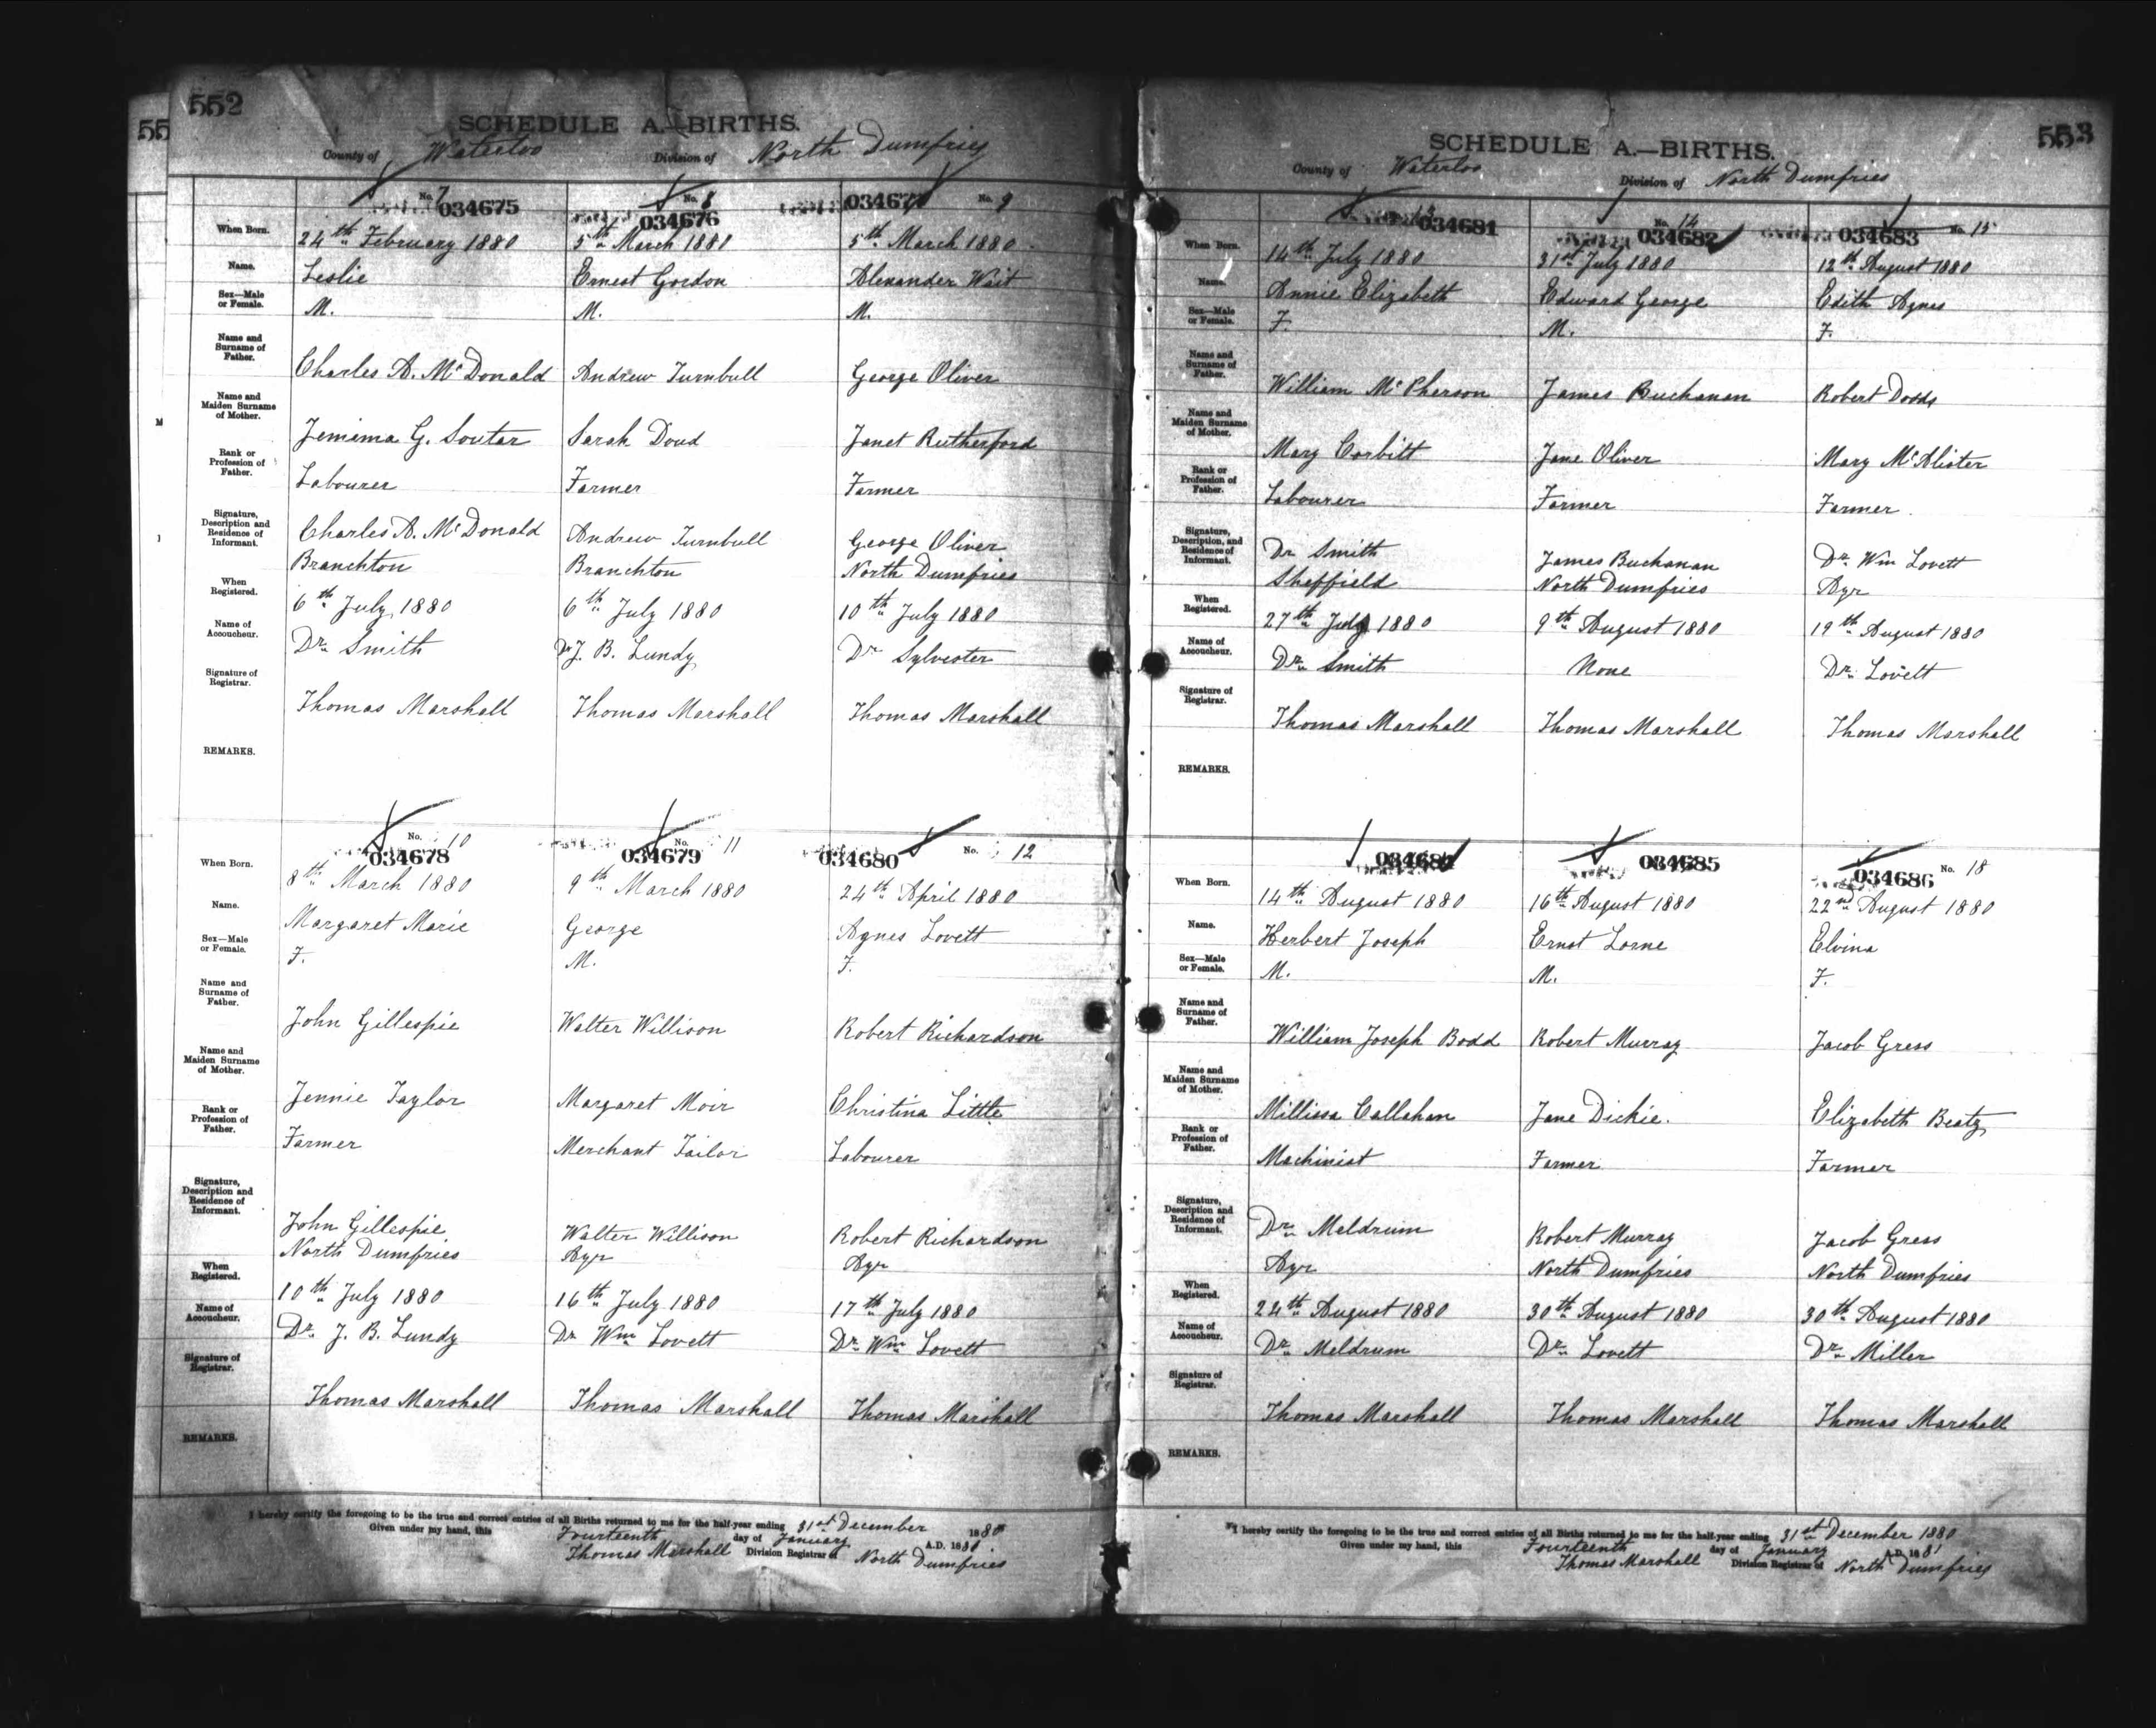 55
552
SCHEDULE A.—BIRTHS.
County of Waterloo Division of North Dumfries
No. 7 034675 No. 8 034676 No. 9
When Born. 24th February 1880 5th March 1880 5th March 1880
Name. Leslie Ernest Gordon Alexander Wait
Sex—Male or Female. M. M. M.
Name and Surname of Father. Charles A. McDonald Andrew Turnbull George Oliver
Name and Maiden Surname of Mother. Jemima G. Soutar Sarah Doud Janet Rutherford
Rank or Profession of Father. Labourer Farmer Farmer
Signature, Description and Residence of Informant. Charles A. McDonald Andrew Turnbull George Oliver
Branchton Branchton North Dumfries
When Registered. 6th July 1880 6th July 1880 10th July 1880
Name of Accoucheur. Dr. Smith Dr J. B. Lundy Dr Sylvester
Signature of Registrar. Thomas Marshall Thomas Marshall Thomas Marshall
REMARKS.
No. 10 034678 No. 11 034679 034680 No. 12
When Born. 8th March 1880 9th March 1880 24th April 1880
Name. Margaret Marie George Agnes Lovett
Sex—Male or Female. F. M. F.
Name and Surname of Father. John Gillespie Walter Willison Robert Richardson
Name and Maiden Surname of Mother. Jennie Taylor Margaret Moir Christina Little
Rank or Profession of Father. Farmer Merchant Tailor Labourer
Signature, Description and Residence of Informant. John Gillespie Walter Willison Robert Richardson
North Dumfries Ayr Ayr
When Registered. 10th July 1880 16th July 1880 17th July 1880
Name of Accoucheur. Dr. J. B. Lundy Dr Wm Lovett Dr. Wm Lovett
Signature of Registrar. Thomas Marshall Thomas Marshall Thomas Marshall
REMARKS.
I hereby certify the foregoing to be the true and correct entries of all Births returned to me for the half-year ending 31st December 1880
Given under my hand, this Fourteenth day of January A.D. 188
Thomas Marshall Division Registrar of North Dumfries
553
SCHEDULE A.—BIRTHS.
County of Waterloo Division of North Dumfries
034681 No. 14 034682 034683 No. 15
When Born. 14th July 1880 31st July 1880 12th August 1880
Name. Annie Elizabeth Edward George Edith Agnes
Sex—Male or Female. F. M. F.
Name and Surname of Father. William McPherson James Buchanan Robert Dodds
Name and Maiden Surname of Mother. Mary Corbitt Jane Oliver Mary McAlister
Rank or Profession of Father. Labourer Farmer Farmer
Signature, Description, and Residence of Informant. Dr Smith James Buchanan Dr. Wm Lovett
Sheffield North Dumfries Ayr
When Registered. 27th July 1880 9th August 1880 19th August 1880
Name of Accoucheur. Dr. Smith None Dr. Lovett
Signature of Registrar. Thomas Marshall Thomas Marshall Thomas Marshall
REMARKS.
034685 034686 No. 18
When Born. 14th August 1880 16th August 1880 22nd August 1880
Name. Herbert Joseph Ernst Lorne Elvina
Sex—Male or Female. M. M. F.
Name and Surname of Father. William Joseph Bodd Robert Murray Jacob Gress
Name and Maiden Surname of Mother. Millissa Callahan Jane Dickie. Elizabeth Beatz
Rank or Profession of Father. Machinist Farmer Farmer
Signature, Description and Residence of Informant. Dr. Meldrum Robert Murray Jacob Gress
Ayr North Dumfries North Dumfries
When Registered. 24th August 1880 30th August 1880 30th August 1880
Name of Accoucheur. Dr. Meldrum Dr. Lovett Dr. Miller
Signature of Registrar. Thomas Marshall Thomas Marshall Thomas Marshall
REMARKS.
I hereby certify the foregoing to be the true and correct entries of all Births returned to me for the half-year ending 31st December 1880
Given under my hand, this Fourteenth day of January A.D. 1881
Thomas Marshall Division Registrar of North Dumfries